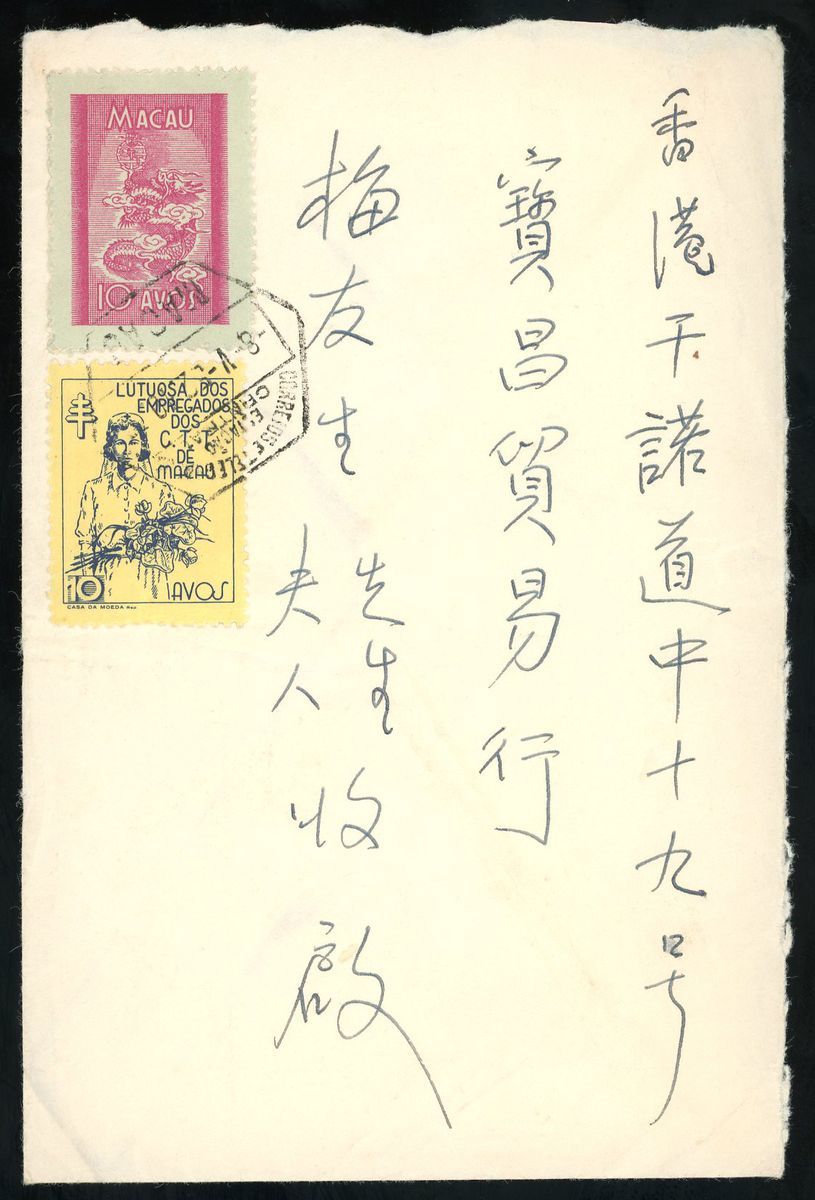 香港干諾道中十九号
寶昌貿易行
梅友生 先生
夫人 收啟
MACAU
10 AVOS
LUTUOSA DOS
EMPREGADOS
DOS
C. T. T.
DE
MACAU
10 AVOS
CASA DA MOEDA
MACAU
CORREIOS E TELEG
CENTRAL